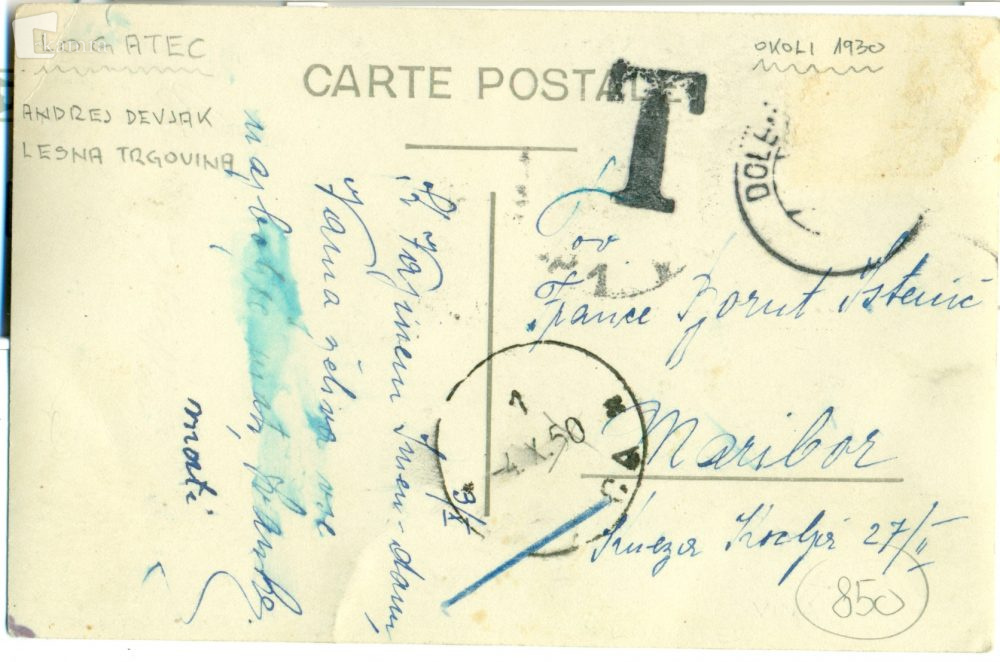 LOGATEC
ANDREJ DEVJAK
LESNA TRGOVINA
OKOLI 1930
CARTE POSTALE
T
DOLE
K Vajinem Imen-danu,
Vama želiva vse
najboljše
mati
3/X
Tov
France Borut Istenič
Maribor
Kneza Koclja 27/II
1
-4.X.50
850